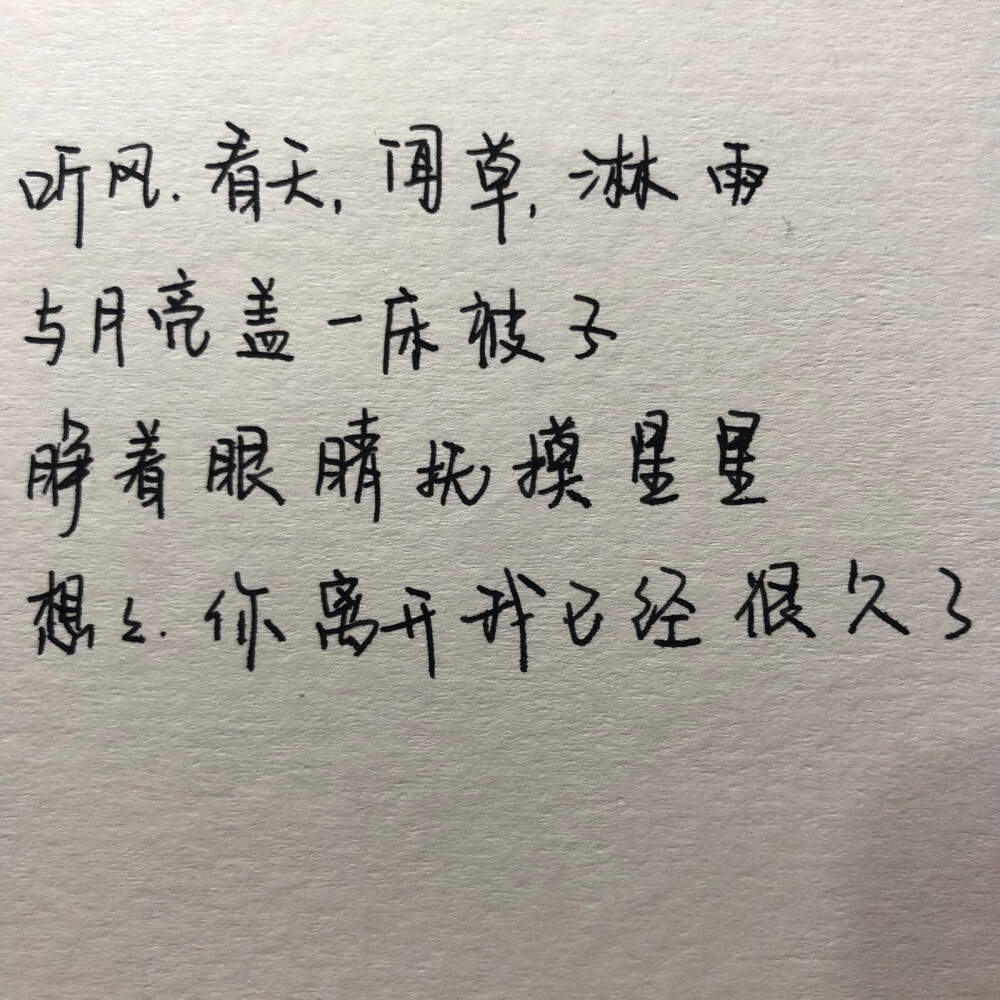 听风.看天,闻草,淋雨
与月亮盖一床被子
睁着眼睛抚摸星星
想想.你离开我已经很久了